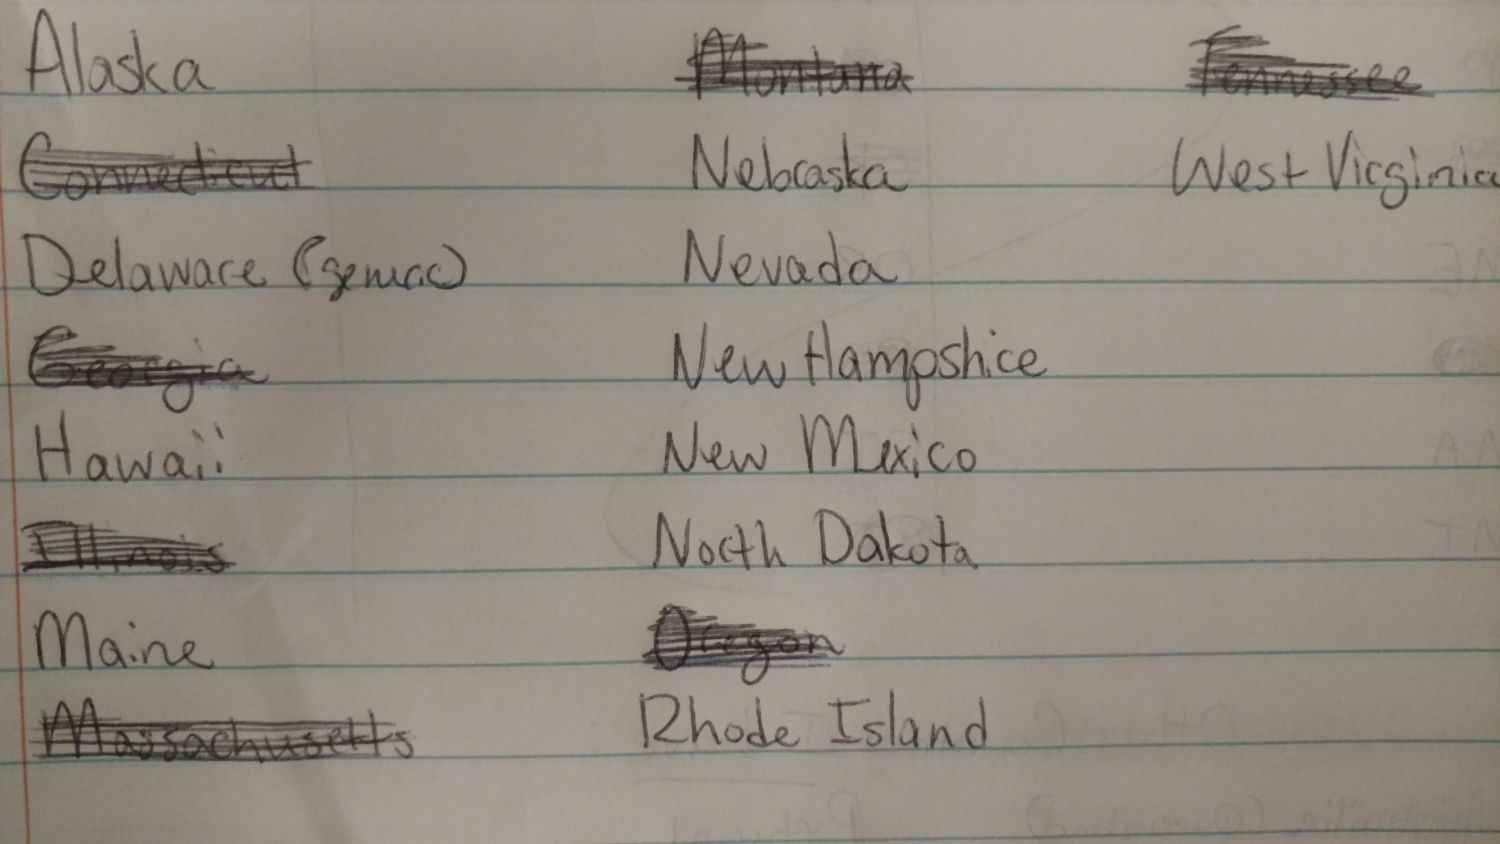 Alaska
Connecticut
Delaware (semic)
Georgia
Hawaii
Illinois
Maine
Massachusetts
Montana
Nebraska
Nevada
New Hampshire
New Mexico
North Dakota
Oregon
Rhode Island
Tennessee
West Virginia